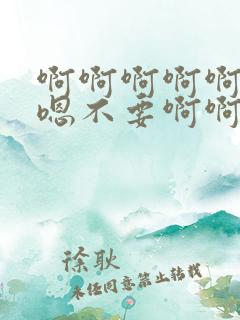 啊啊啊啊啊
嗯不要啊啊
徐耿
未经同意禁止转载